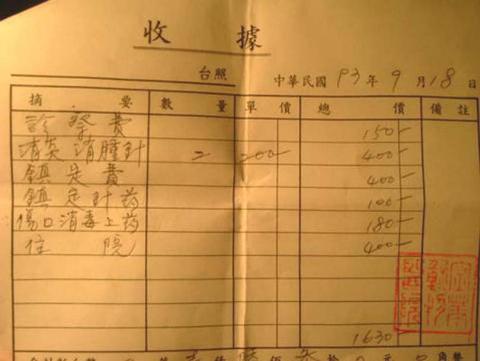 收據
台照 中華民國 93年9月18日
摘要 數量 單價 總價 備註
診察費 150-
消炎消腫針 2 200- 400-
鎮定費 400-
鎮定針药 100-
傷口消毒上药 180-
住院 400-
1630-